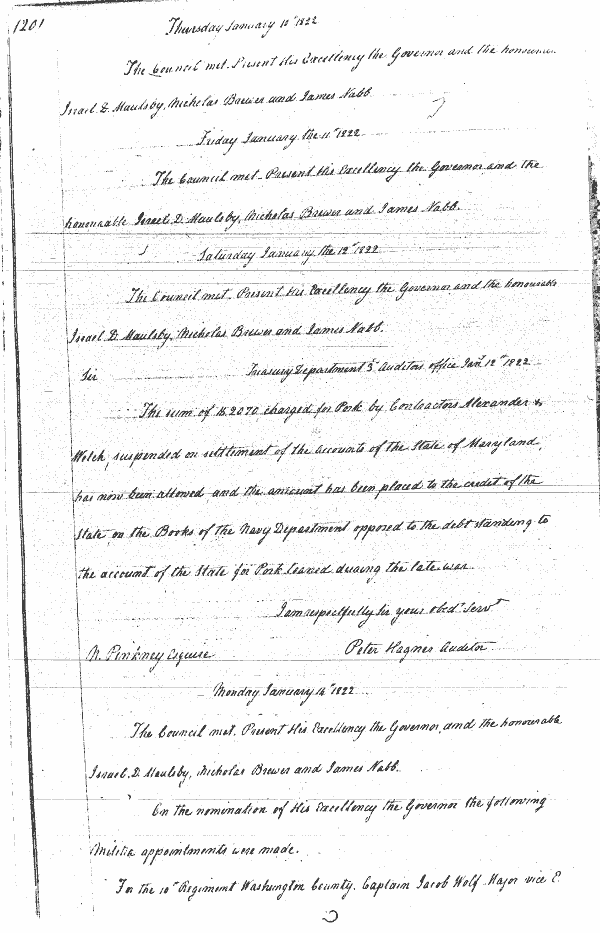 1201
Thursday January 10th 1822
The Council met. Present His Excellency the Governor and the
Israel D. Maulsby, Nicholas Brewer and James Nabb.
Friday January the 11th 1822
The Council met. Present His Excellency the Governor and the
honourable Israel D. Maulsby, Nicholas Brewer and James Nabb.
Saturday January the 12th 1822
The Council met. Present His Excellency the Governor and the honourable
Israel D. Maulsby, Nicholas Brewer and James Nabb.
Sir Treasury Department 3d Auditors office Jany 12th 1822
The sum of 2070 charged for Pork by Contractors Alexander &
Welch, suspended on settlement of the accounts of the State of Maryland,
has now been allowed and the amount has been placed to the credit of the
State on the Books of the Navy Department opposed to the debt standing to
the account of the State for Pork loaned during the late war.
I am respectfully Sir your obedt Servt
N. Pinkney Esquire Peter Hagner Auditor
Monday January 14th 1822
The Council met. Present His Excellency the Governor and the honourable
Israel D. Maulsby, Nicholas Brewer and James Nabb.
On the nomination of His Excellency the Governor the following
Militia appointments were made.
For the 10th Regiment Washington County. Captain Jacob Wolf Major vice E.